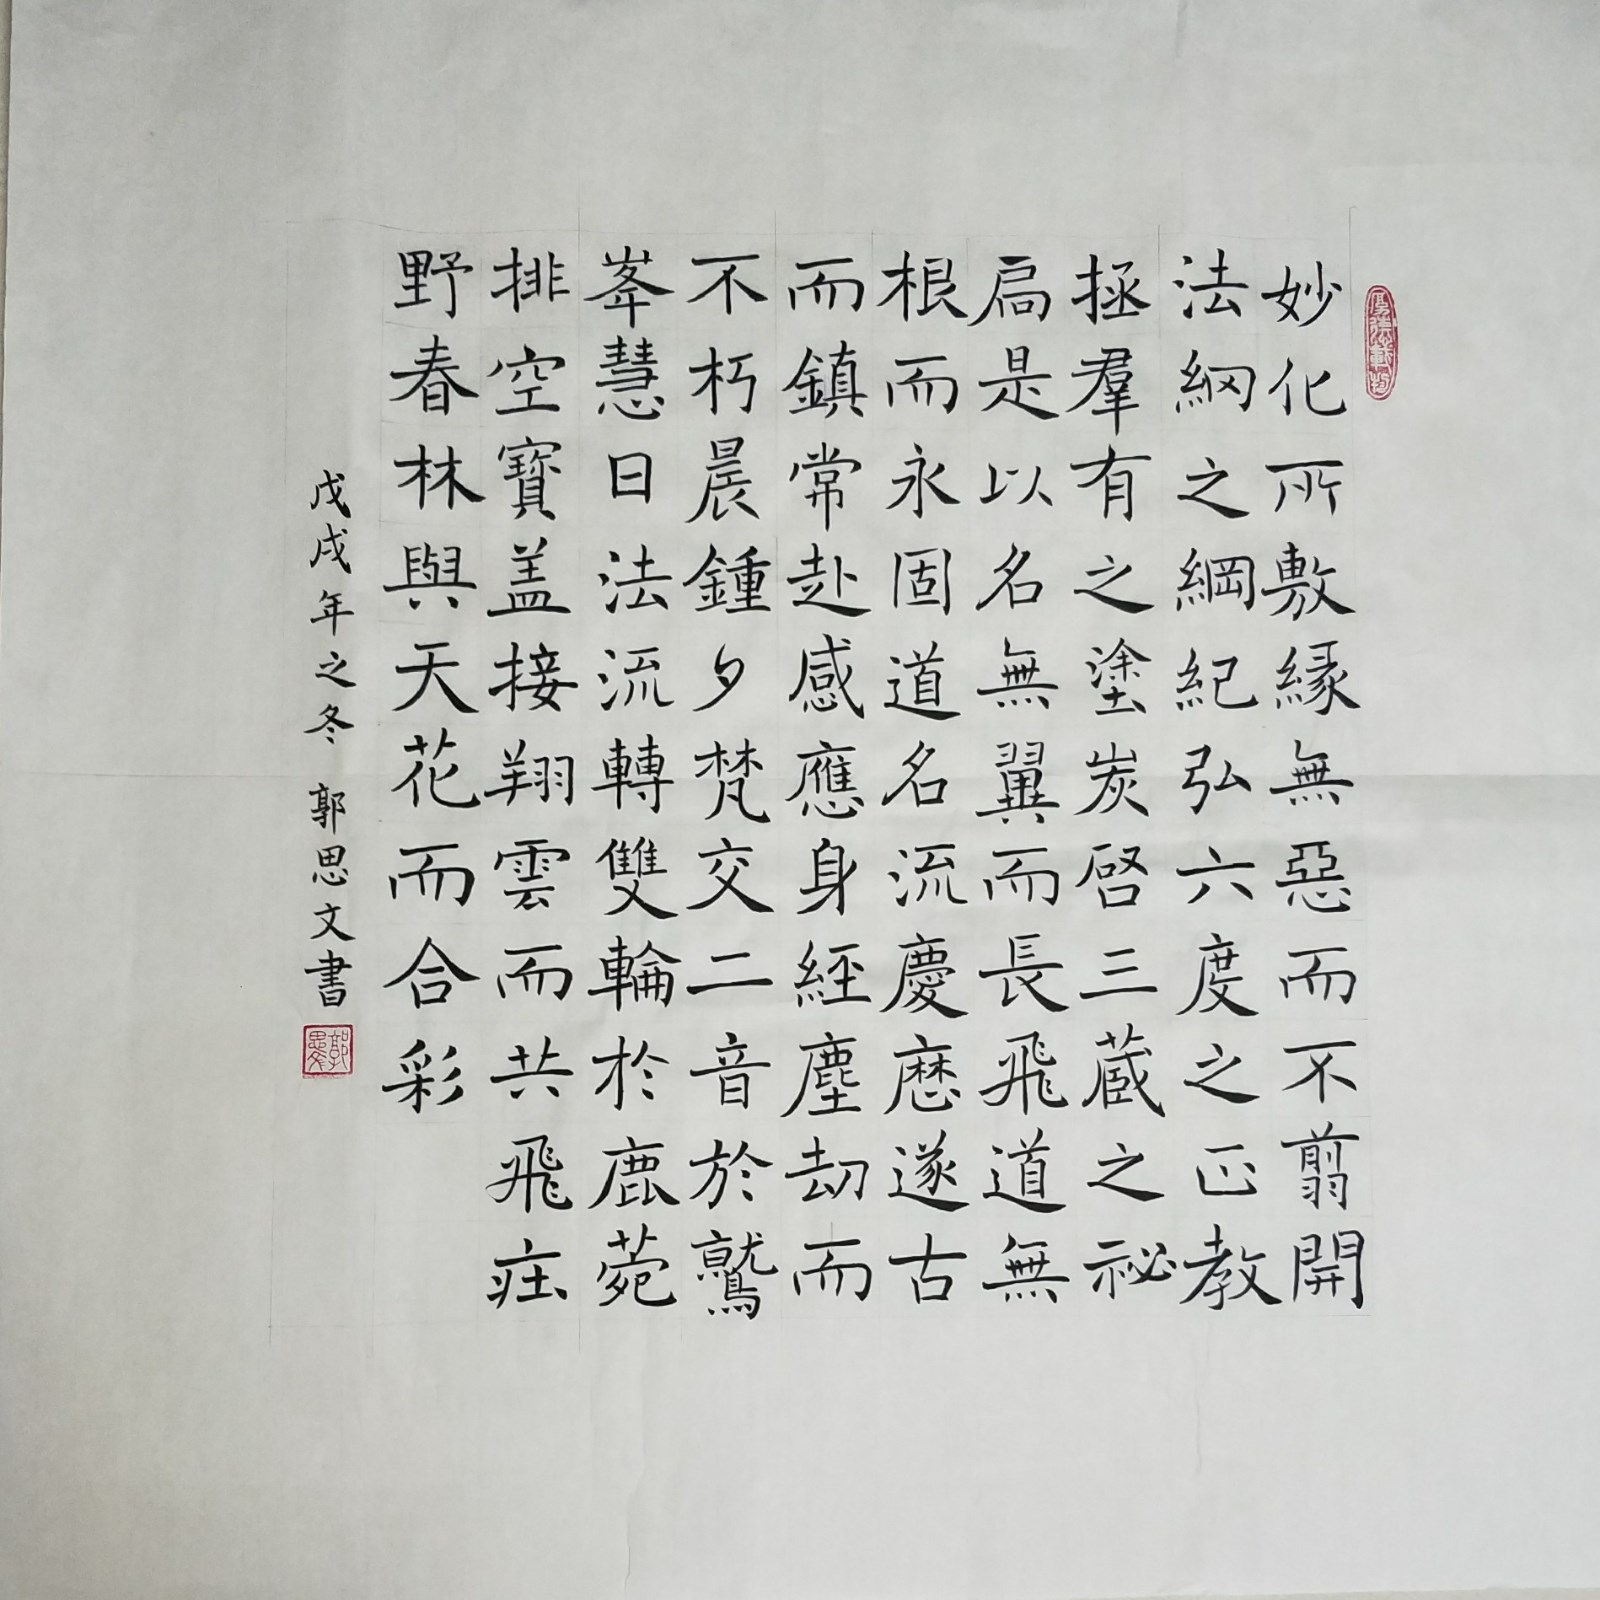 厚德載物
妙化所敷緣無惡而不翦開
法網之綱紀弘六度之正教
拯羣有之塗炭啓三藏之祕
扃是以名無翼而長飛道無
根而永固道名流慶歷遂古
而鎮常赴感應身經塵劫而
不朽晨鍾夕梵交二音於鷲
峯慧日法流轉雙輪於鹿菀
排空寶盖接翔雲而共飛莊
野春林與天花而合彩
戊戌年之冬 郭思文書